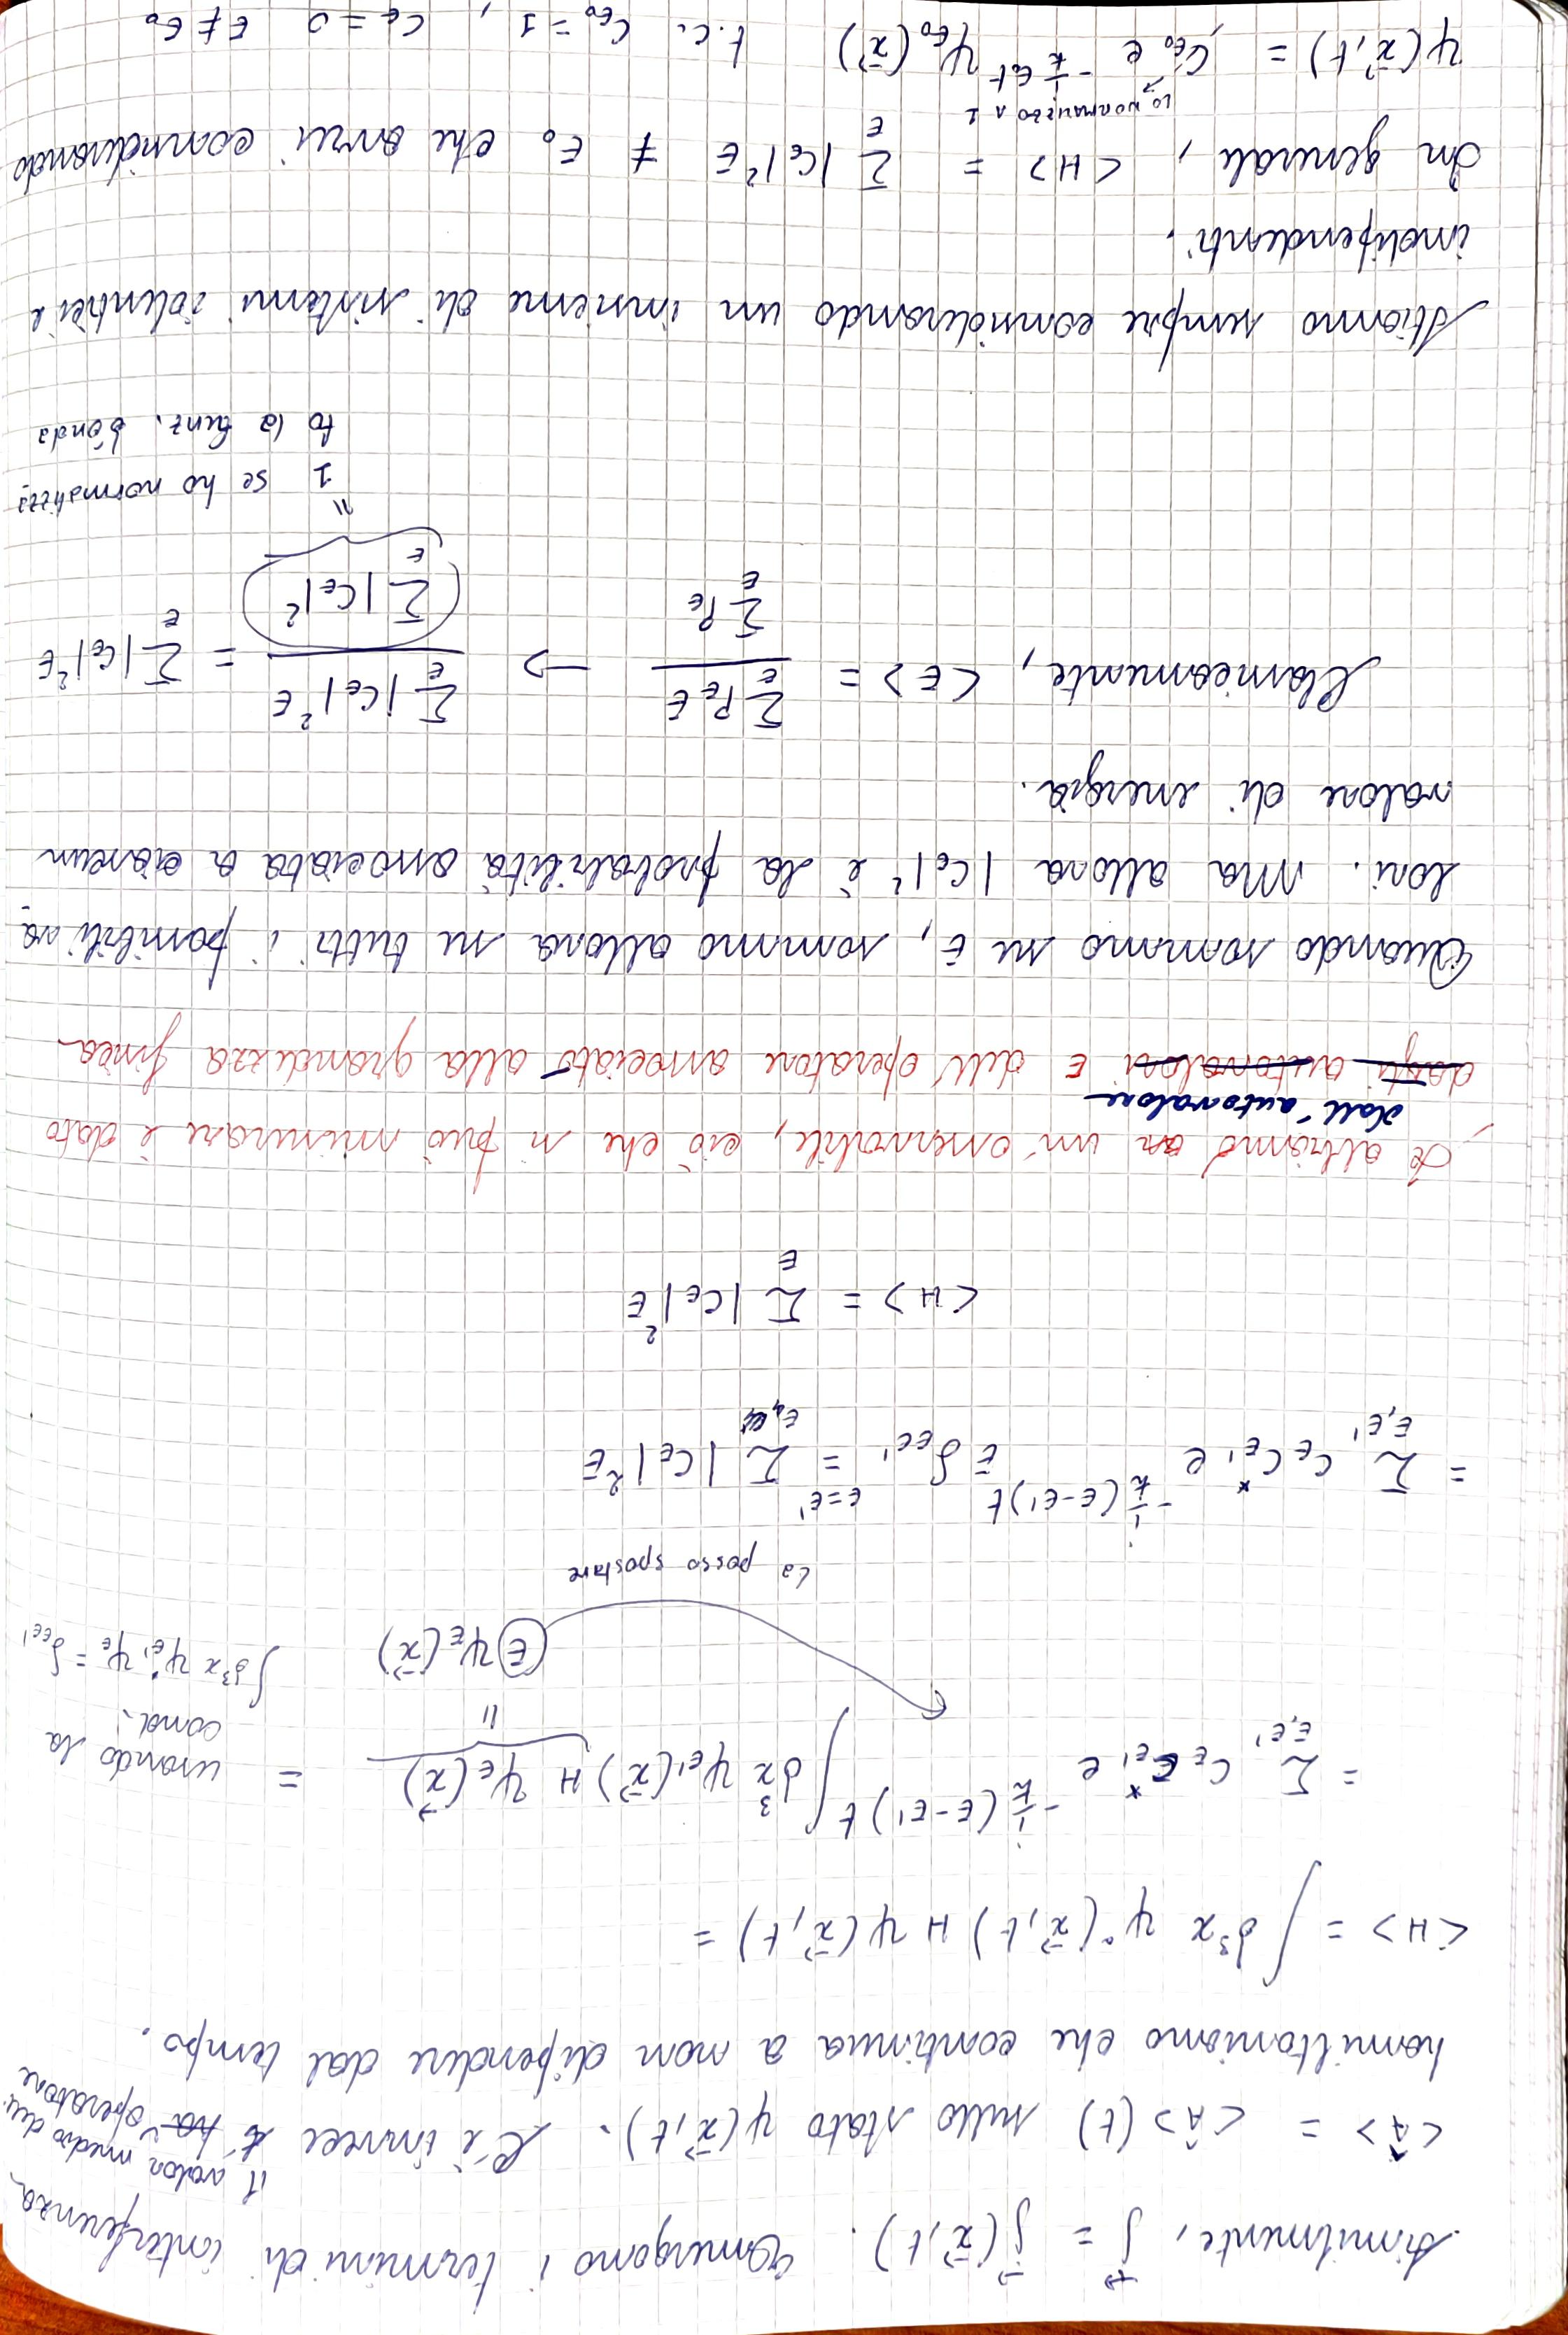 Similmente, j⃗ = j⃗(x⃗,t). Emergono i termini di interferenza
<Â> = <Â>(t) sullo stato ψ(x⃗,t). C'è invece il valor medio dell' operatore
hamiltoniano che continua a non dipendere dal tempo.
<H> = ∫ d³x ψ*(x⃗,t) H ψ(x⃗,t) =
= Σ_{E,E'} C_E C*_{E'} e^{-i/ħ (E-E') t} ∫ d³x ψ_{E'}(x⃗) H ψ_E(x⃗) = usando la
cond.
"
E ψ_E(x⃗) ∫ d³x ψ*_{E'} ψ_E = δ_{EE'}
La posso spostare
= Σ_{E,E'} C_E C*_{E'} e^{-i/ħ (E-E') t} E δ_{EE'} =^{E=E'} Σ_E |C_E|² E
<H> = Σ_E |C_E|² E
Se abbiamo un osservabile, ciò che si può misurare è dato
dall'autovalore
dagli autovalori E dell'operatore associato alla grandezza fisica
Quando sommo su E, sommo allora su tutti i possibili va-
lori. Ma allora |C_E|² è la probabilità associata a ciascun
valore di energia.
Classicamente, <E> = Σ_E P_E E / Σ_E P_E → Σ_E |C_E|² E / Σ_E |C_E|² = Σ_E |C_E|² E
"
1 se ho normalizza-
to la funz. d'onda
Stiamo sempre considerando un insieme di sistemi identici e
indipendenti.
In generale, <H> = Σ_E |C_E|² E ≠ E₀ che avrei considerando
LO NORMALIZZO A 1
ψ(x⃗,t) = C_{E₀} e^{-i/ħ E₀t} ψ_{E₀}(x⃗) t.c. C_{E₀} = 1, C_E = 0 E ≠ E₀